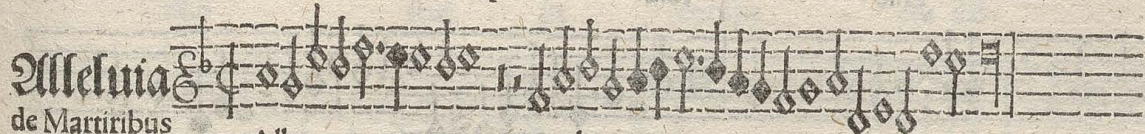 Alleluia
de Martiribus